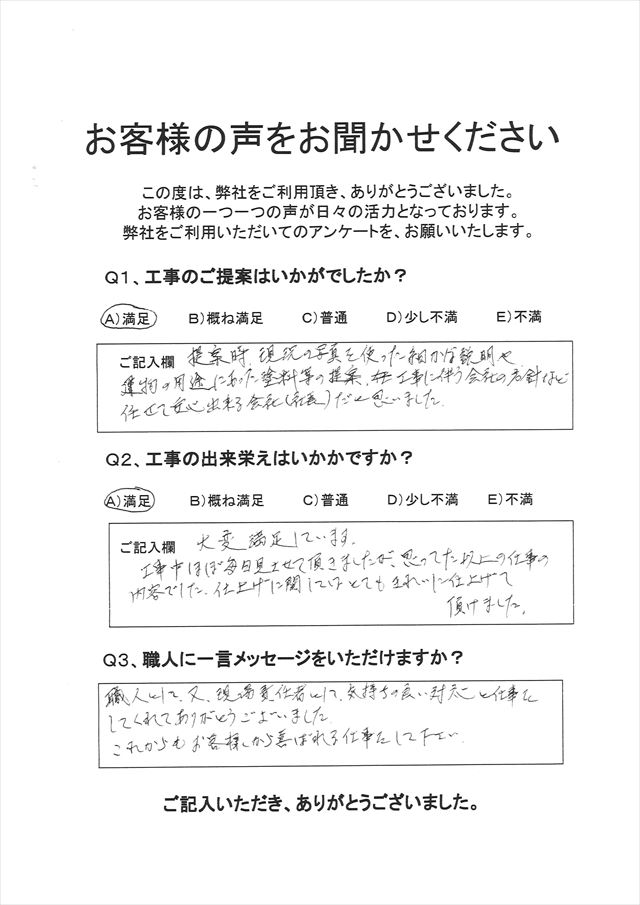 お客様の声をお聞かせください
この度は、弊社をご利用頂き、ありがとうございました。
お客様の一つ一つの声が日々の活力となっております。
弊社をご利用いただいてのアンケートを、お願いいたします。
Q1、工事のご提案はいかがでしたか？
A)満足 B)概ね満足 C)普通 D)少し不満 E)不満
ご記入欄 提案時、現況の写真を使った細かな説明や
建物の用途にあった塗料等の提案、工事に伴う会社の方針など
任せて安心出来る会社(社長)だと思いました。
Q2、工事の出来栄えはいかかですか？
A)満足 B)概ね満足 C)普通 D)少し不満 E)不満
ご記入欄 大変満足しています。
工事中ほぼ毎日見させて頂きましたが、思ってた以上の仕事の
内容でした。仕上げに関してはとてもきれいに仕上げて
頂けました。
Q3、職人に一言メッセージをいただけますか？
職人として、又、現場責任者として、気持ちの良い対応と仕事を
してくれてありがとうございました。
これからもお客様から喜ばれる仕事をして下さい。
ご記入いただき、ありがとうございました。